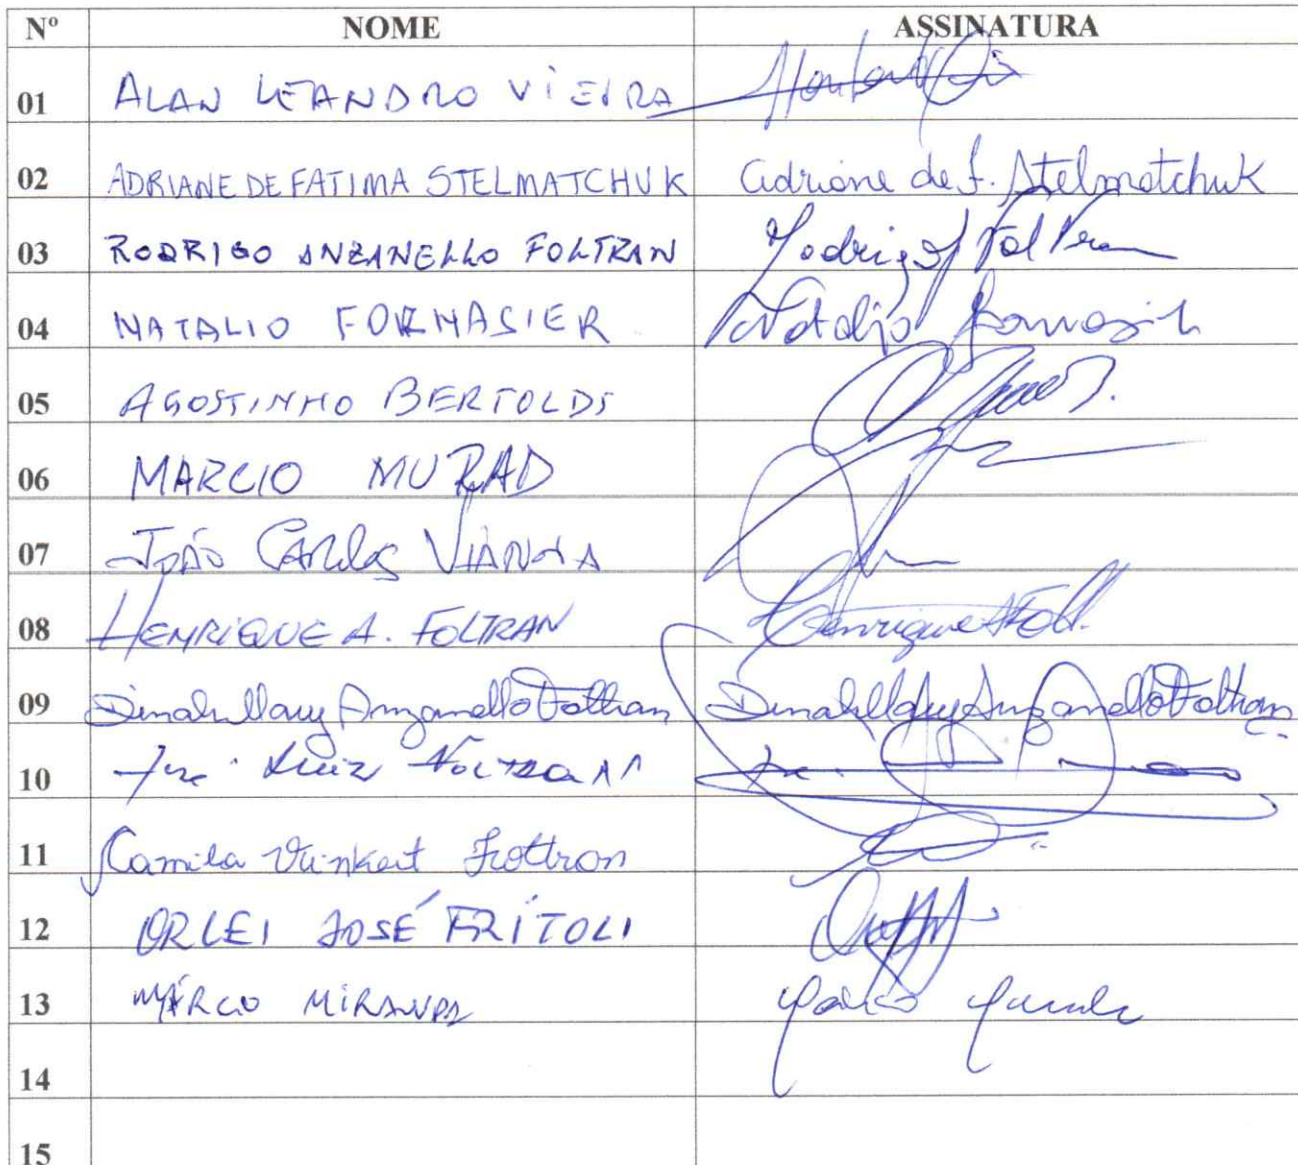 Nº NOME ASSINATURA
01 ALAN LEANDRO VIEIRA
02 ADRIANE DE FATIMA STELMATCHUK Adriane de F. Stelmatchuk
03 RODRIGO ANZANELLO FOLTRAN Rodrigo Foltran
04 NATALIO FORNASIER Natalio Fornasier
05 AGOSTINHO BERTOLDI
06 MARCIO MURAD
07 JOÃO CARLOS VIANNA
08 HENRIQUE A. FOLTRAN Henrique A Folt.
09 Dinah Mary Anzanello Foltran Dinah Mary Anzanello Foltran
10 José Luiz Foltran
11 Camila Foltran
12 ORLEI JOSÉ FRITOLI
13 MÁRCIO MIRANDA
14
15